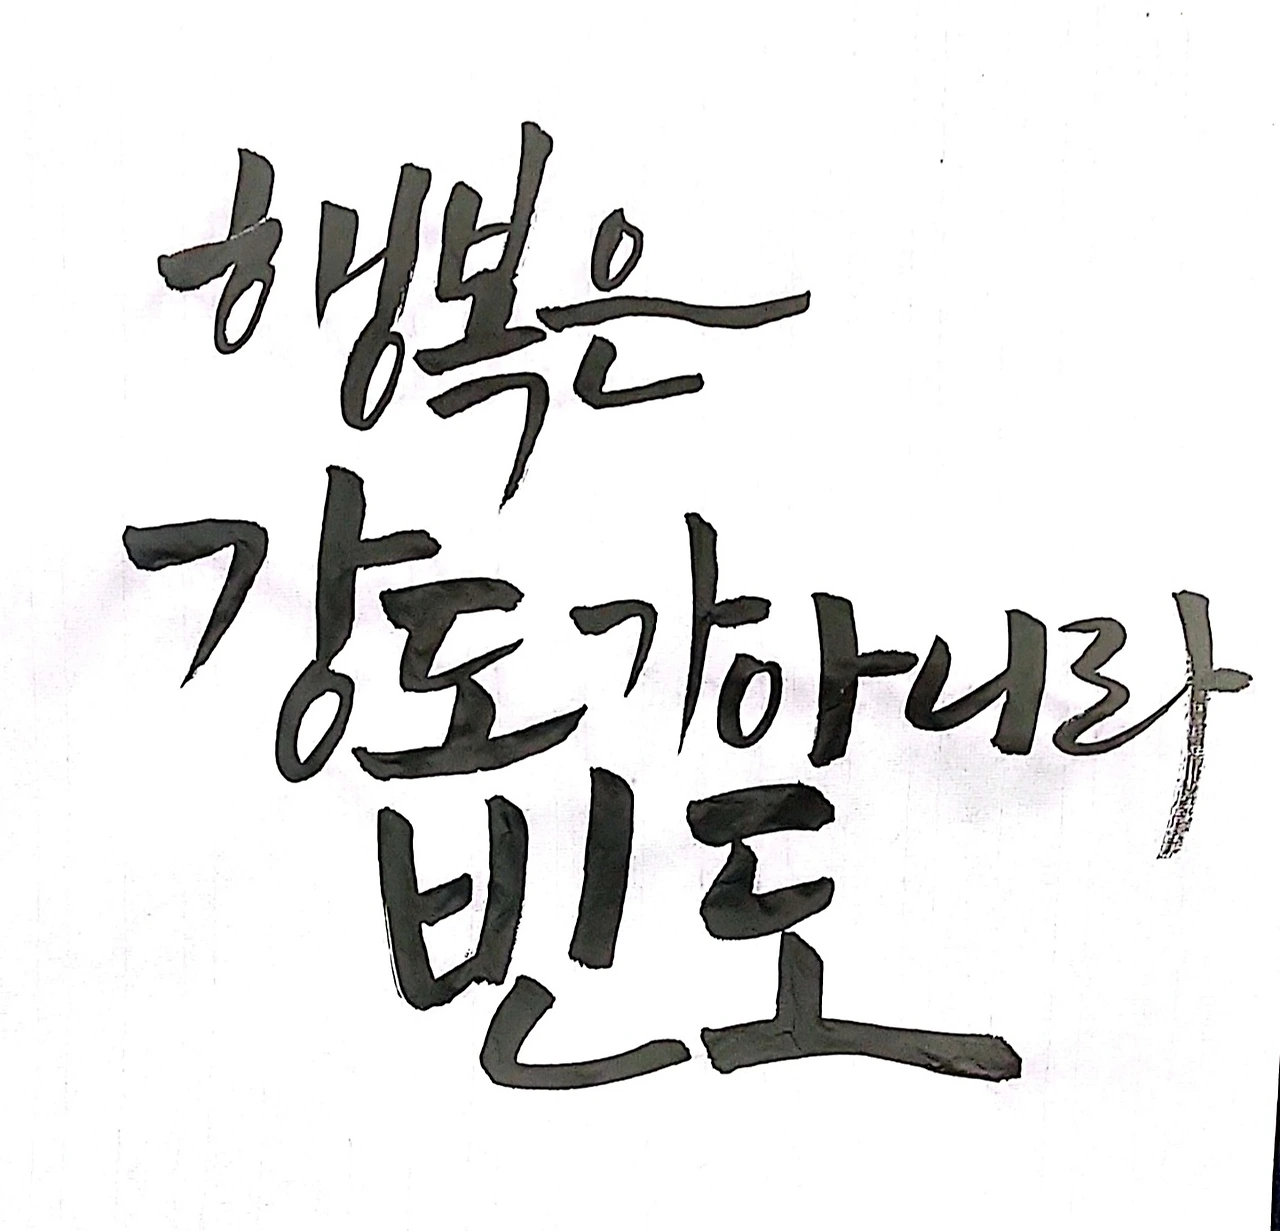 행복은
강도가아니라
빈도